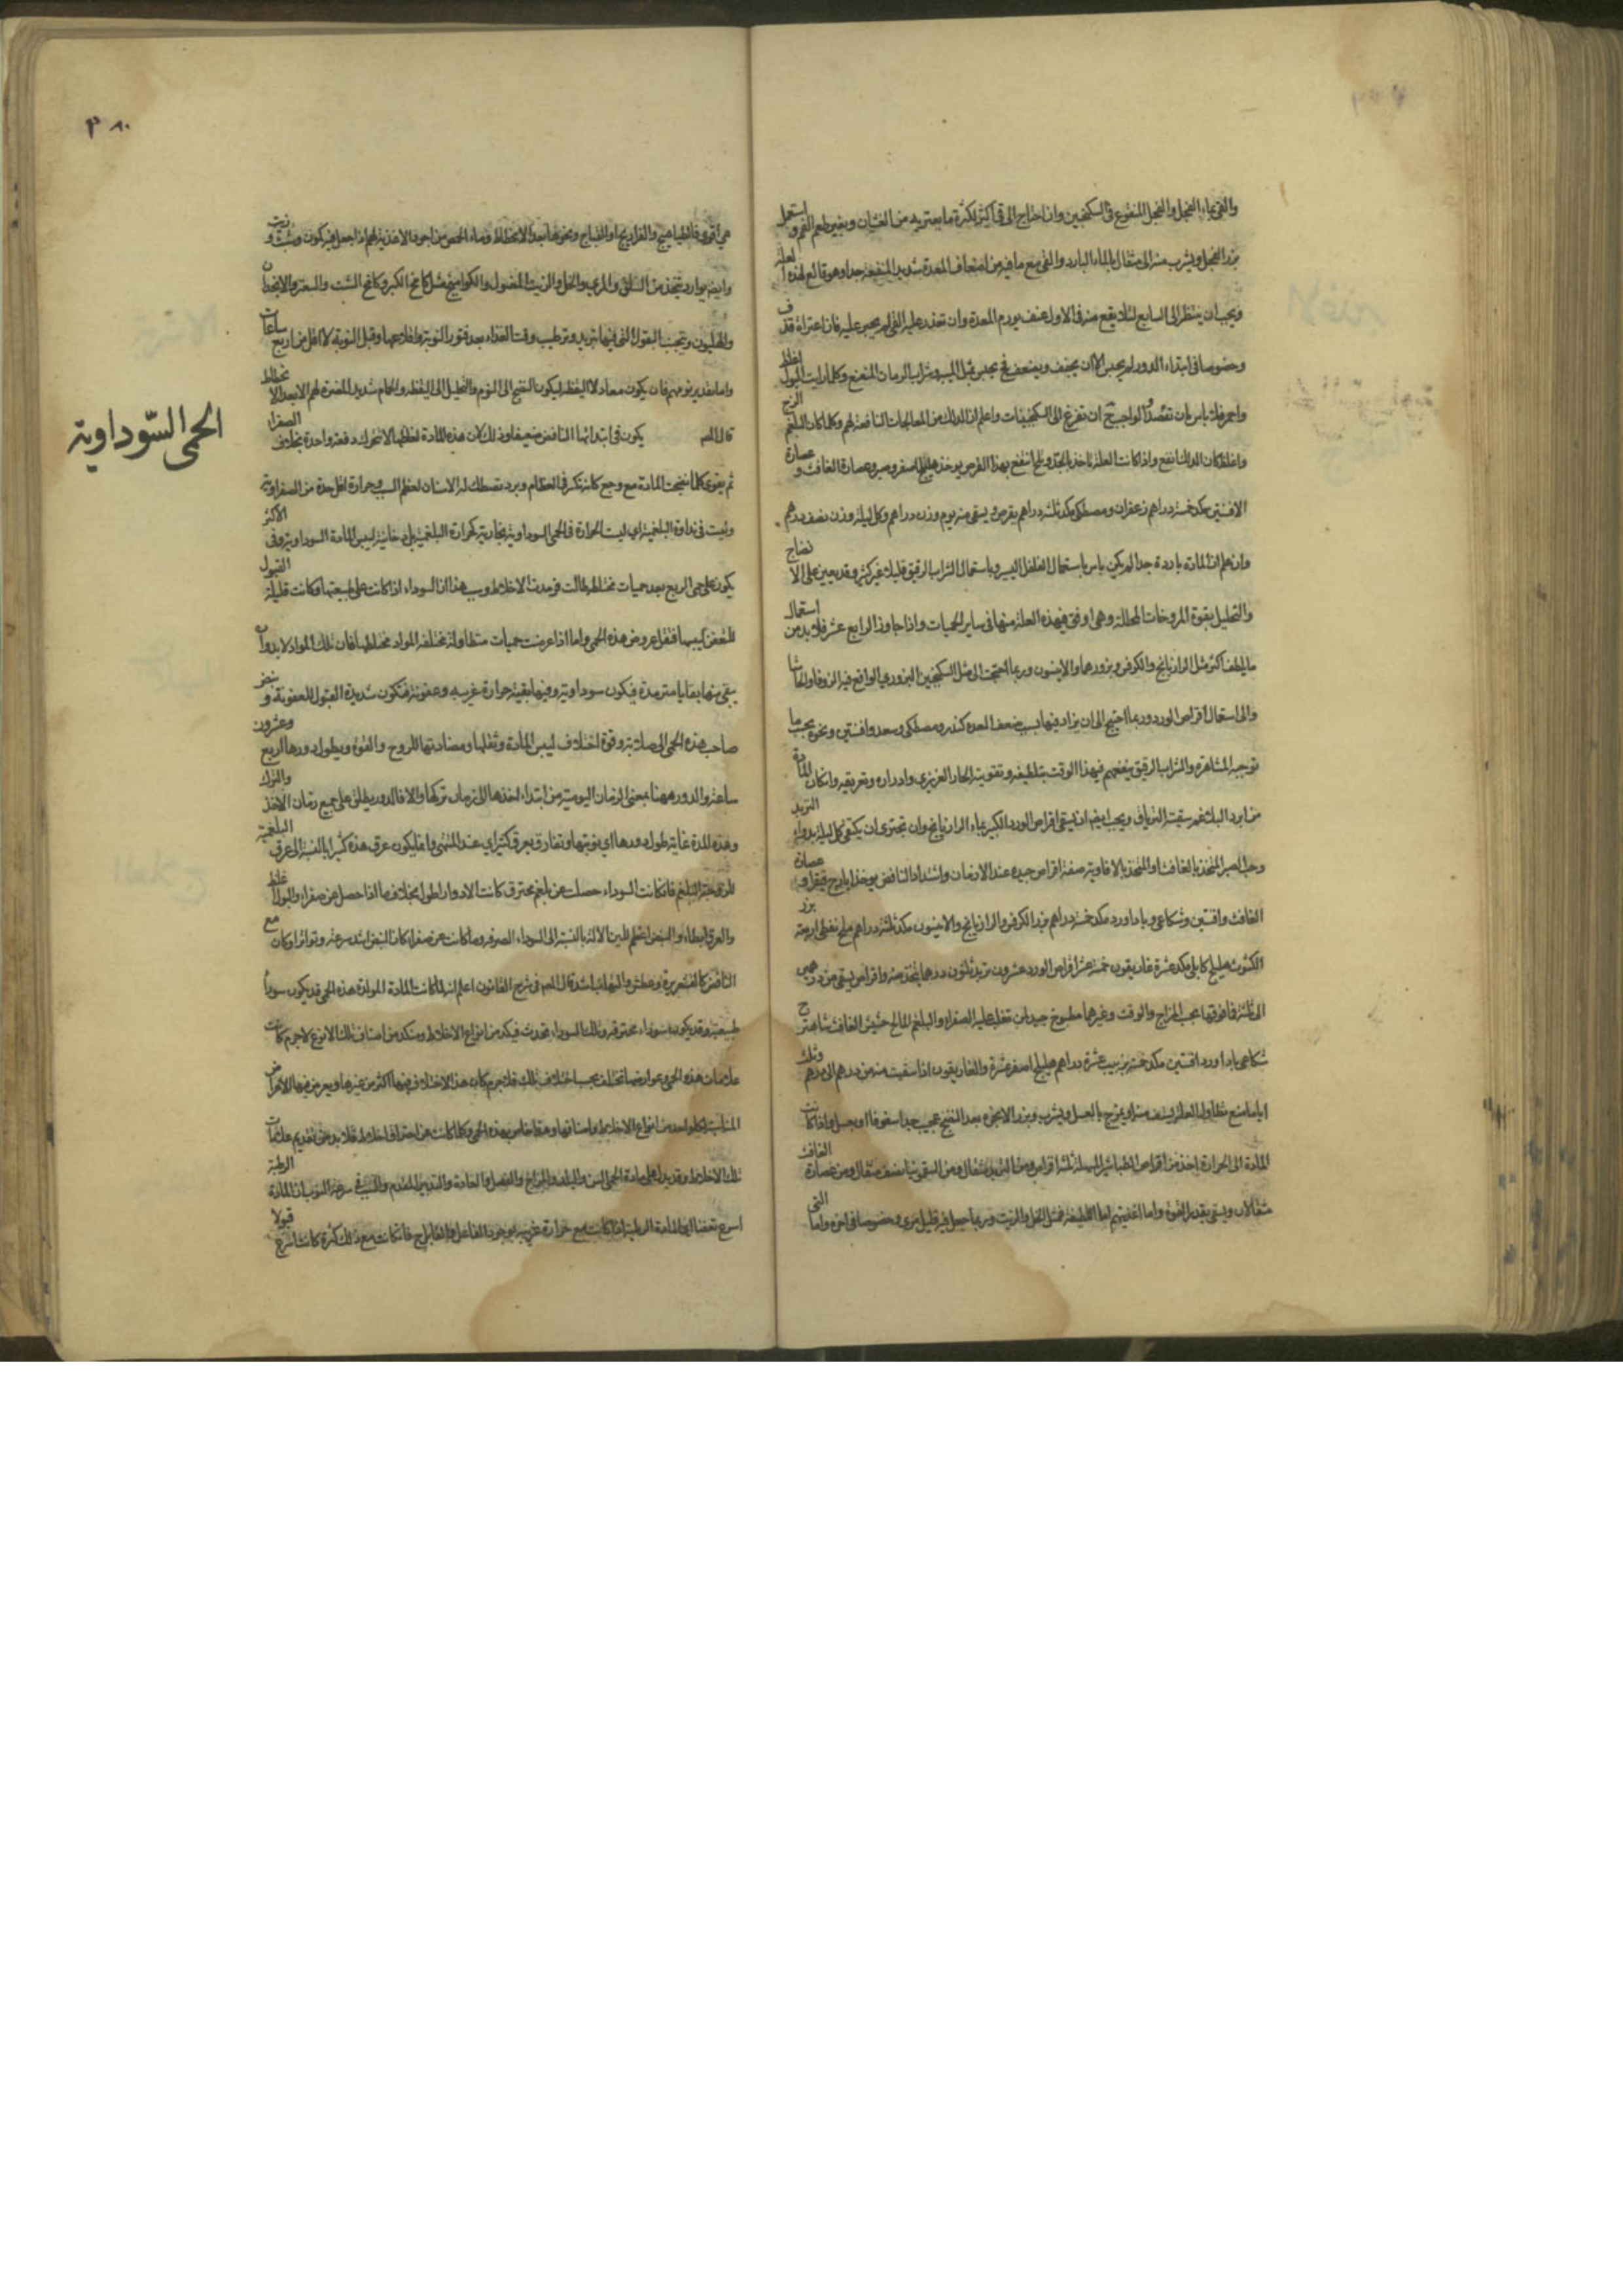 والقئ بماء الفجل والفجل المنقوع في السكنجبين وان احتاج الى قئ اكثر لكثرة ما يعتريه من الغثيان وبغير طعم الفم و استعمل
بزر الفجل ويشرب منه الى مثقال بالماء البارد والقئ مع ما فيه من اضعاف المعدة شديد المنفعة جدا وهو قالع لهذه العلة
ويجب ان ينتظر الى السابع لئلا يقع منه في الاول عنف يورم المعدة وان تعذر عليه القئ لم يجبر عليه فان اعتراه قذف
وخصوصا في ابتداء الدور لم يحبس الا ان يجحف ويضعف فح يحبس بمثل الميبه وشراب الرمان المنعنع وكلما رايت البول اغلظ
واحمر فلا باس بان تفصد والواجب ح ان تفزع الى السكنجبينات واعلم ان الدلك من المعالجات النافعة لهم وكلما كان البلغم الزج
واغلظ كان الدلك انفع واذا كانت العلة تاخذ بالجد ولم انتفع بهذا القرص يوخذ هليلج اصفر وصبر وعصارة الغافت و عصارة
الافسنتين مكد خمسة دراهم زعفران ومصطكى مكد ثلثة دراهم يقرص ويسقى منه يوم وزن دراهم وكل ليلة وزن نصف درهم
وان علم ان المادة باردة جدا لم يكن باس باستعمال الفلفل اليسير وباستعمال الشراب الرقيق قليلا غير كثير وقد يعين على الا نضاج
والتحليل بقوة المروخات المحللة وهي اوفق في هذه العلة منها في ساير الحميات واذا جاوز الرابع عشر فلا بد من استعمال
ما يلطف اكثر مثل الرازيانج والكرفس وبزورهما والانيسون وربما احتجت الى مثل السكنجبين البزوري الواقع فيه الزوفا والحاشا
والى استعمال اقراص الورد وربما احتيج الى ان يزاد فيها بسبب ضعف المعدة كندر ومصطكى وسعد وافسنتين ونحوه بحسب ما
توجبه المشاهدة والشراب الرقيق ينفعهم في هذا الوقت بتلطيفه وتقويته الحار الغريزي وادراره وتعريقه وان كان المادة
من ابرد البلاغم سقيته الترياق ويجب ايضا ان يسقى اقراص الورد الكبير بماء الرازيانج وان تحترى ان يكتفى كل ليلة بدواء التربد
وحب الصبر المتخذ بالغافت او المتخذ بالافاويه صفة اقراص جيدة عند الازمان واشتداد النافض يوخذ ايارج فيقرا و عصارة
الغافت وافسنتين وشكاعى وباداورد مكد خمسة دراهم بزر الكرفس والرازيانج والانيسون مكد ثلثة دراهم ملح نفطي اربعة بزر
الكشوث هليلج كابلي مكد عشرة غاريقون خمسة عشر اقراص الورد عشرون تربد ثلثون درهما يتخذ منه اقراص يسقى من درهمين
الى ثلثة فما فوقها بحسب المزاج والوقت وغيرهما مطبوخ جيد لمن تغلب عليه الصفراء والبلغم المالح حشيش الغافت شاهترج
شكاعى باداورد افسنتين مكد خمسة زبيب عشرة دراهم هليلج اصفر عشرة والغاريقون اذا سقيت منه من درهم الى درهم وثلث
اياما منع تطاول العلة يستف منه او يمزج بالعسل ويشرب وبزر الانجرة بعد النضج عجيب جدا سفوفا او بعسل واذا كانت
المادة الى الحرارة اخذ من اقراص الطباشير المسهلة ثلثة اقراص ومن التربد مثقال ومن السقمونيا نصف مثقال ومن عصارة الغافت
مثقالان ويسقى بقدر القوة واما اغذيتهم اما اللطيفة فمثل الخل والزيت وربما جعل فيه قليل مري وخصوصا في اخره واما التي
٣٨٠
هي اقوى فالطياهيج والفراريج او القباج ونحوها بعد الانحطاط وماء الحمص من اجود الاغذية لهم اذا جعل فيه كمون وشبث و زيت
وايضا بوارد تتخذ من السلق والمري والخل والزيت المغسول والكواميخ مثل كامخ الكبر وكامخ الشبت والسعتر والانجدان
والهليون وتجنب البقول التي فيها تبريد وترطيب وقت الغذاء بعد فتور النوبة واقلاعها وقبل النوبة لا اقل من اربع ساعات
واما تقدير نومهم فان يكون معادلا لليقظة ليكون النضج الى النوم والتحليل الى اليقظة والحمام شديد المضرة لهم الا بعد الا نحطاط
قال المص يكون في ابتدائها النافض ضعيفا وذلك لان هذه المادة لغلظها لا تتحرك دفعة واحدة بخلاف الصفراء
الحمى السّوداوية
ثم يقوى كلما نضجت المادة مع وجع كانه تكسر في العظام وبرد تصطك له الاسنان لعظم السبب وحرارة اقل حدة من الصفراوية
وليست في نداوة البلغمية اي ليست الحرارة في الحمى السوداوية بخارية كحرارة البلغمية بل دخانية ليبس المادة السوداوية وفي الاكثر
يكون على حمى الربع بعد حميات مختلطة طالت فرمدت الاخلاط وسبب هذا ان السوداء اذا كانت على طبيعتها وكانت قليلة القبول
للتعفن ليبسها فقل عروض هذه الحمى واما اذا عرضت حميات متطاولة مختلفة المواد مختلطها فان تلك المواد لا بد وان
يبقى منها بقايا مترمدة فيكون سوداوية وفيها بقية حرارة غريبة وعفونة فتكون شديدة القبول للعفونة و نبض
صاحب هذه الحمى الى صلابة وقوة اختلاف ليبس المادة وثقلها ومضادتها للروح والقوة ويطول دورها اربع وعشرون
ساعة والدور ههنا بمعنى الزمان اليومية من ابتداء اخذها الى زمان تركها والا فالدور يطلق على جميع زمان الاخذ والترك
وهذه المدة غاية طول دورها اي نوبتها وتفارق بعرق كثير اي عند المنتهى وانما يكون عرق هذه كثيرا بالنسبة الى عرق البلغمية
للزوجة البلغم فان كانت السوداء حصلت عن بلغم محترق كانت الادوار اطول بخلاف ما اذا حصل عن صفراء والبول اغلظ
والعرق ابطاء والنبض اعظم للين الالة بالنسبة الى السوداء الصرفة وما كانت عن صفراء كان النبض اشد سرعة وتواترا وكان مع
النافض كالقشعريرة وعطش والتهاب اشد قال المص في شرح القانون اعلم انه لما كانت المادة المولدة هذه الحمى قد يكون سوداء
طبيعية وقد يكون سوداء محترقة وتلك السوداء تحدث فيكد من انواع الاخلاط ومنكد من اصناف تلك الانوع لاجرم كانت
علامات هذه الحمى وعوارضها تختلف بحسب اختلاف تلك فلاجرم كان هذا الاختلاف فيها اكثر من غيرها ويعرض فيها الاعراض
المناسبة لكل واحد من انواع الاخلاط واصنافها وهذا خاص بهذه الحمى وكلما كانت عن احتراق اخلاط فلا بد من تقديم علامات
تلك الاخلاط وقد يدل على مادة الحمى السن والبلد والمزاج والفصل والعادة والتدبير المتقدم والسبب في سرعة النوب ان المادة الرطبة
اسرع تعفنا لان المادة الرطبة اذا كانت مع حرارة غريبة يوجد الفاعل والقابل ح فان كانت مع ذلك كثرة كانت اسرع قبولا